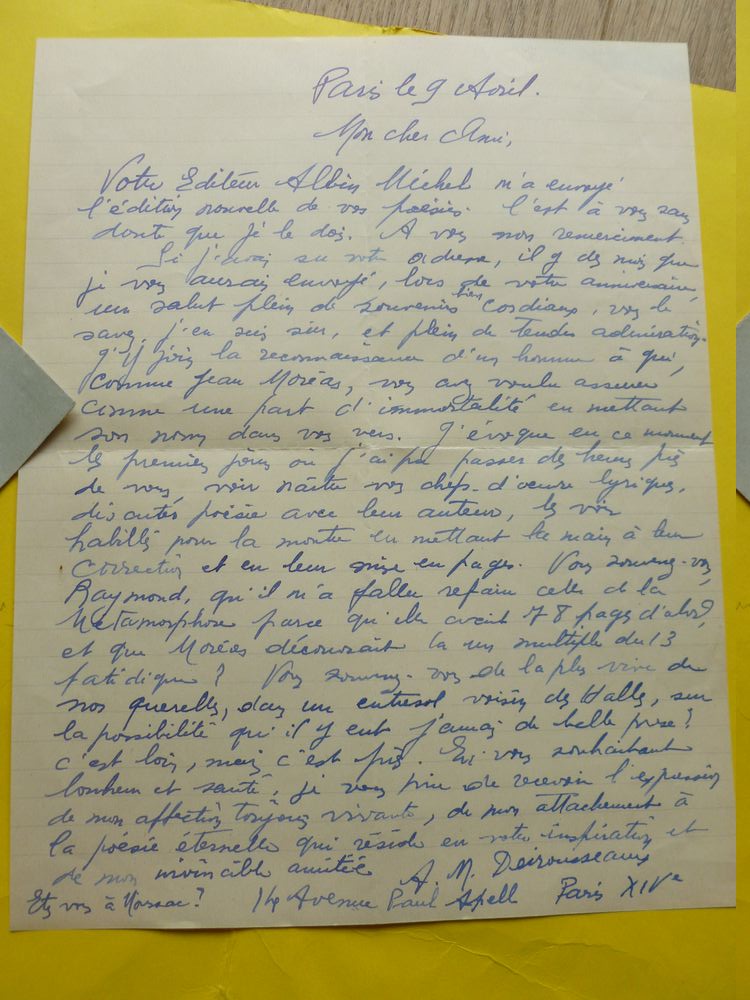 Paris le 9 Avril.
Mon cher Ami,
Votre Editeur Albin Michel m'a envoyé
l'édition nouvelle de vos poésies. C'est à vous sans
doute que je le dois. A vous mon remerciment.
Si j'avais su votre adresse, il y a des mois que
je vous aurais envoyé, lors de votre anniversaire,
un salut plein de souvenirs bien cordiaux, vous le
savez, j'en suis sûr, et plein de tendre admiration.
J'y joins la reconnaissance d'un homme à qui,
comme Jean Moréas, vous avez voulu assurer
comme une part d'immortalité en mettant
son nom dans vos vers. J'évoque en ce moment
les premiers jours où j'ai pu passer des heures près
de vous, voir naître vos chefs d'oeuvre lyriques,
discuter poésie avec leur auteur, les voir
habillés pour la montre en mettant la main à leur
correction et en leur mise en pages. Vous souvenez-vous,
Raymond, qu'il m'a fallu refaire celle de la
Métamorphose parce qu'elle avait 78 pages d'abord,
et que Moréas découvrait là un multiple du 13
fatidique ? Vous souvenez-vous de la plus vive de
nos querelles, dans un entresol voisin des Halles, sur
la possibilité qu'il y eut jamais de belle prose ?
C'est loin, mais c'est près. En vous souhaitant
bonheur et santé, je vous prie de recevoir l'expression
de mon affection toujours vivante, de mon attachement à
la poésie éternelle qui réside en votre inspiration et
de mon invincible amitié
A. M. Desrousseaux
Etes vous à Horsac ? 14 Avenue Paul Apell Paris XIVe